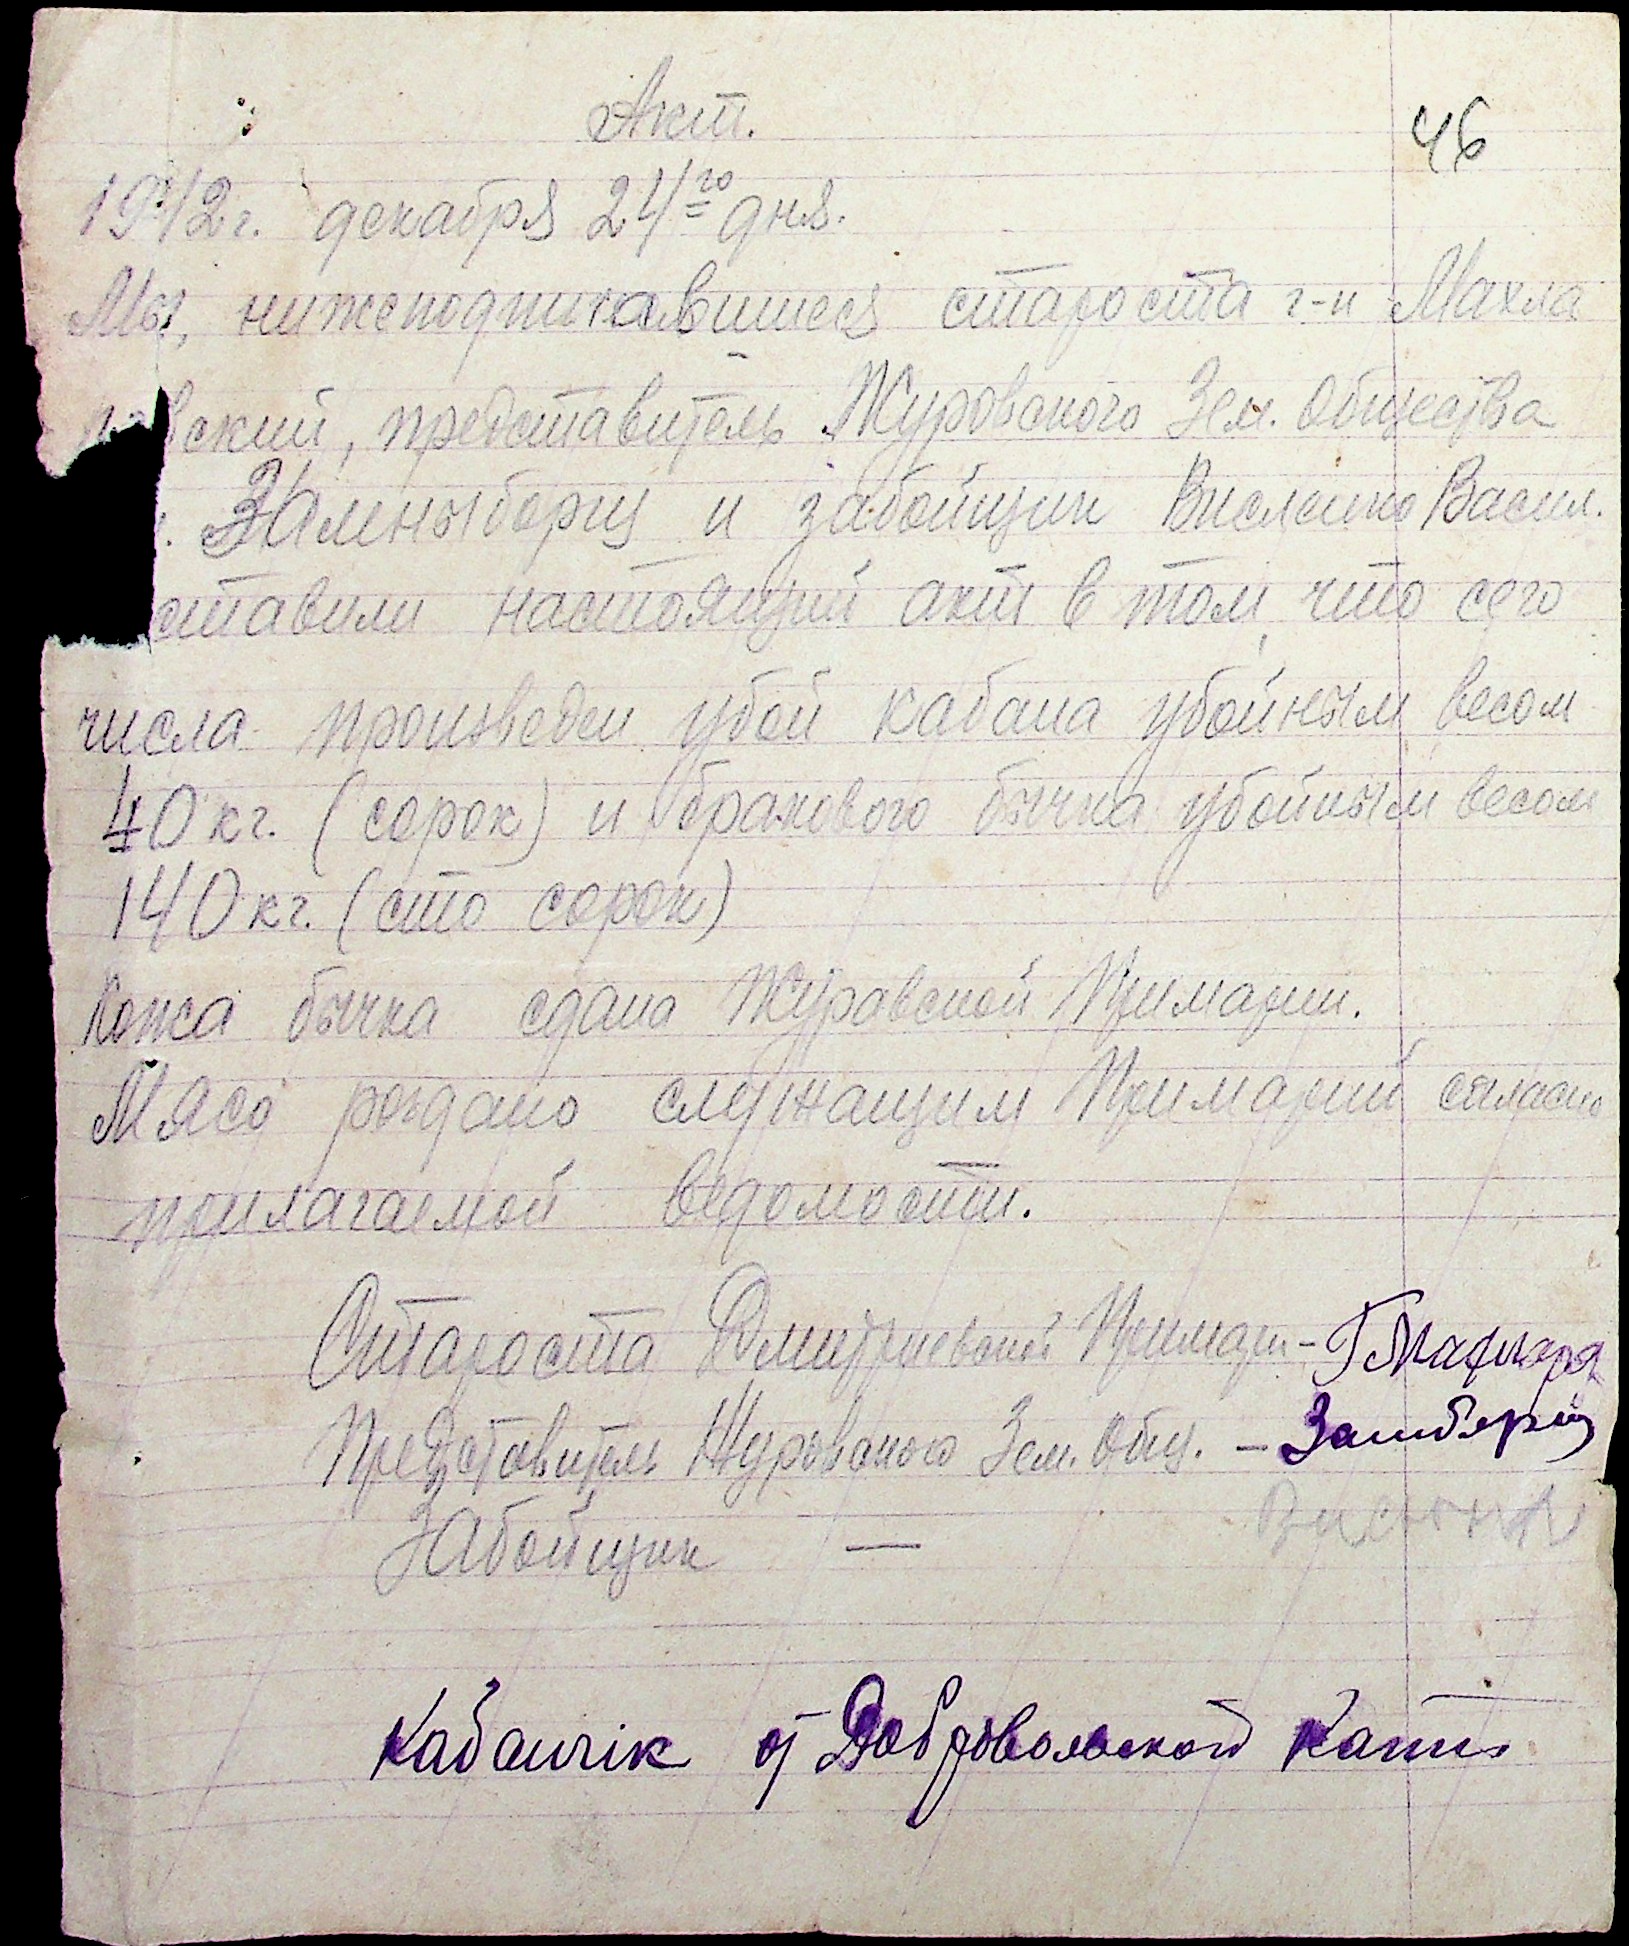 Акт.
46
1942г. декабря 24го дня.
Мы, нижеподписавшиеся староста г-н Махла
вский, представитель Журовского Зем. Общества
и забойщик Висленко Васил.
ставили настоящий акт в том, что сего
числа произведен убой кабана убойным весом
40 кг. (сорок) и бракового бычка убойным весом
140 кг. (сто сорок)
Кожа бычка сдана Журавской Примарии.
Мясо роздано служащим Примарии согласно
прилагаемой ведомости.
Староста Дмитриевской Примарии –
Представитель Журовского Зем. Общ. –
Забойщик —
Кабанчік от Добровольской Кати